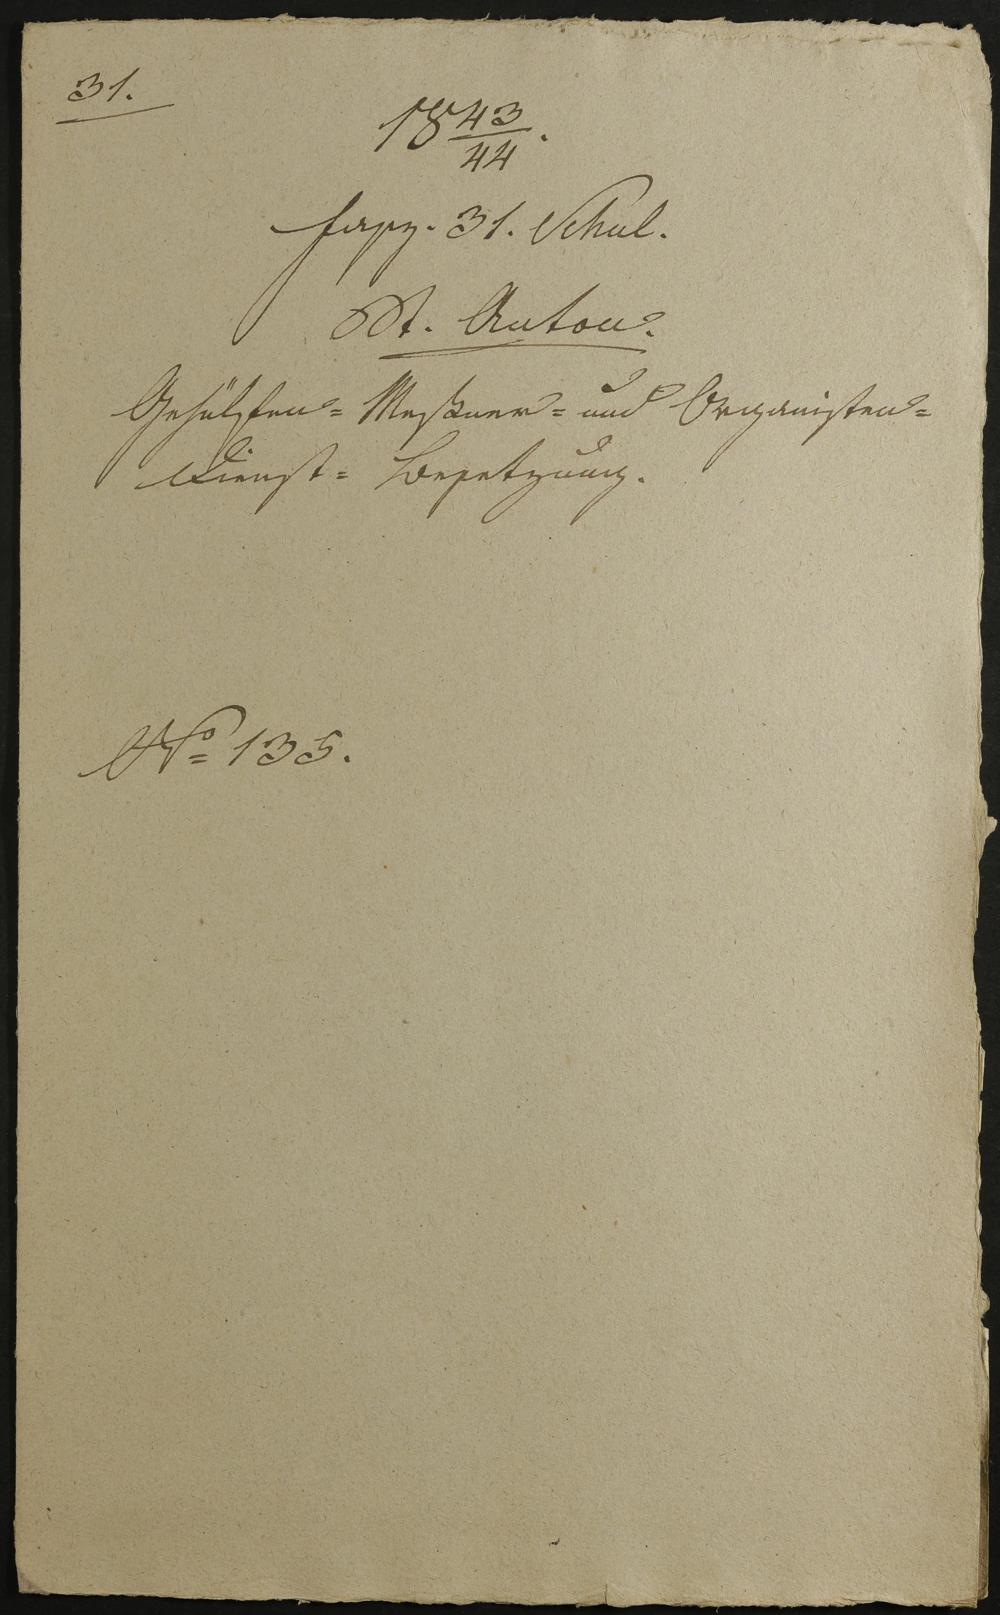 31.
18 43/44.
fasz. 31. Schul.
St. Anton.
Gehülfen= Meßner= und Organisten=
Dienst= Besetzung.
No 135.